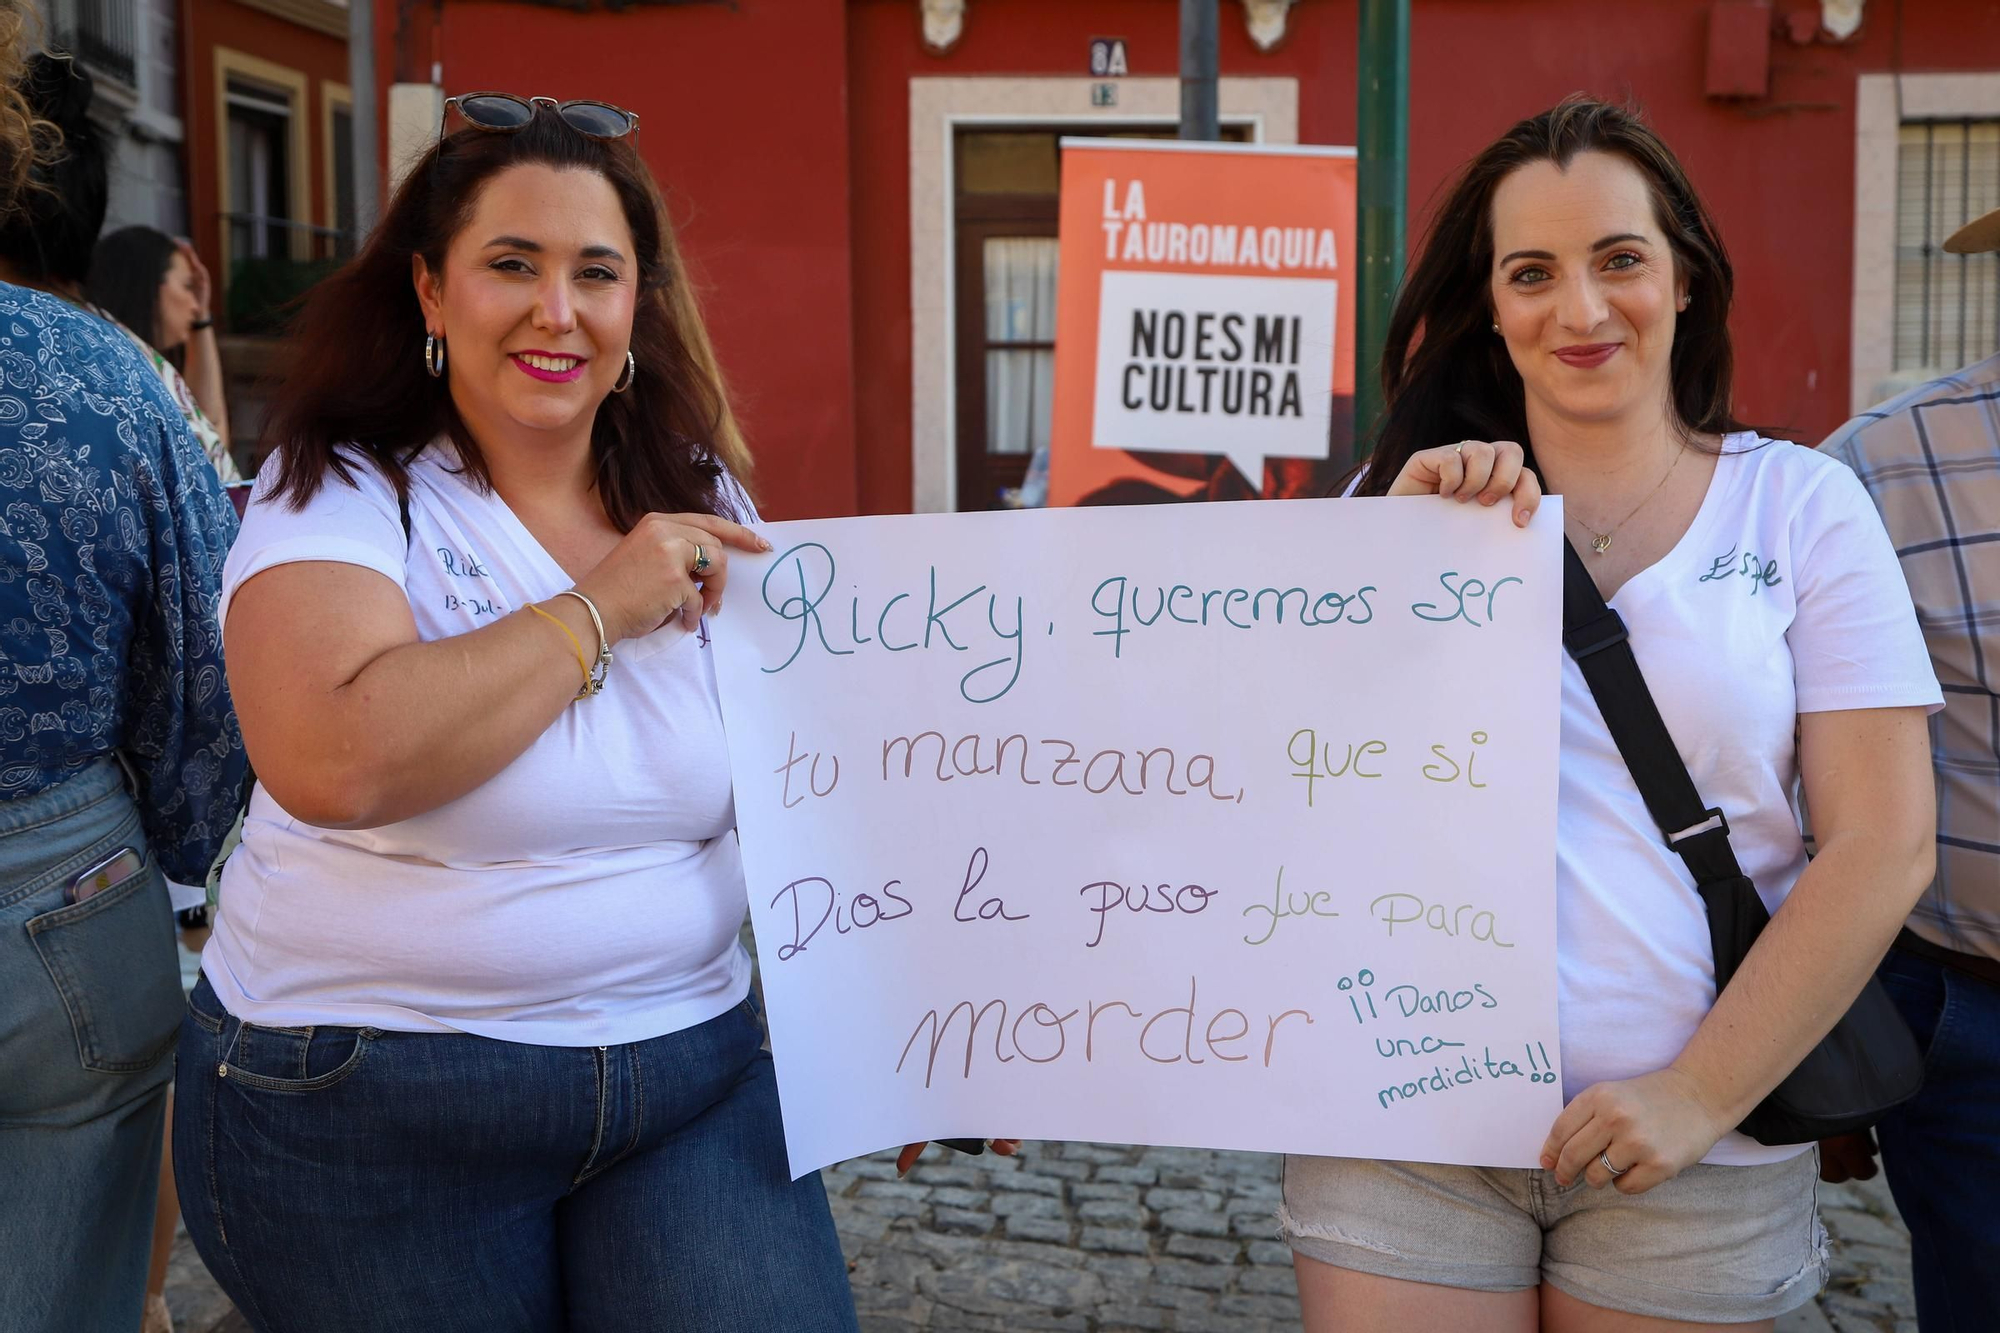 8A
13
LA
TAUROMAQUIA
NO ES MI
CULTURA
Espe
13-Jul-
Ricky, queremos ser
tu manzana, que si
Dios la puso fue para
morder ¡¡Danos
una
mordidita!!